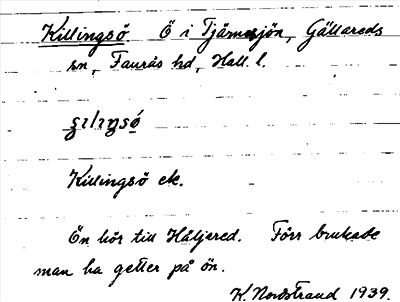 Killingsö Ö i Tjärnesjön, Gällareds
sn, Faurås hd, Hall. l.
Killingsö ek.
Ön hör till Häljared. Förr brukade
man ha getter på ön.
K. Nordstrand 1939.